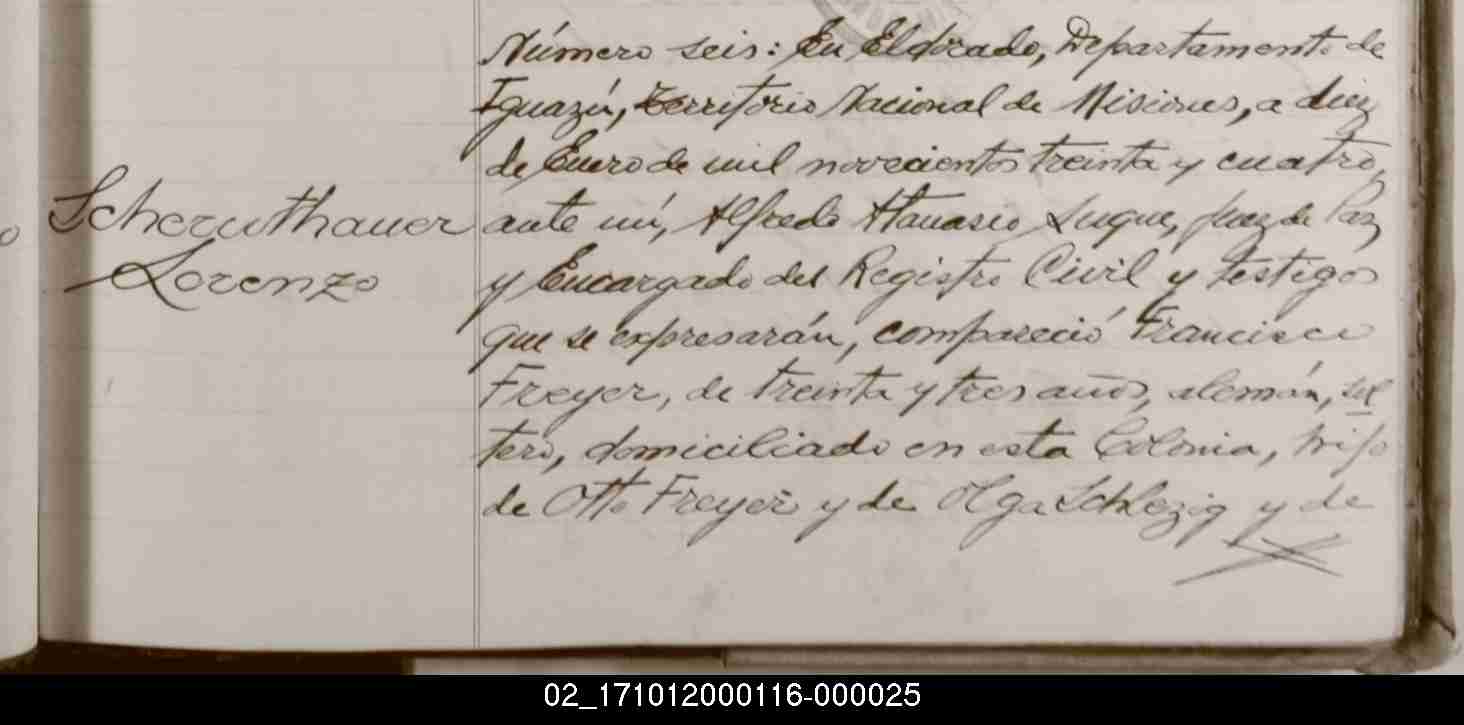 Scheruthauer
Lorenzo
Número seis: En Eldorado, Departamento de
Iguazú, Territorio Nacional de Misiones, a diez
de Enero de mil novecientos treinta y cuatro,
ante mí, Alfredo Atanasio Luque, Juez de Paz
y Encargado del Registro Civil y testigos
que se expresarán, compareció Francisco
Freyer, de treinta y tres años, alemán, sol
tero, domiciliado en esta Colonia, hijo
de Otto Freyer y de Olga Schlezig y de
02_171012000116-000025